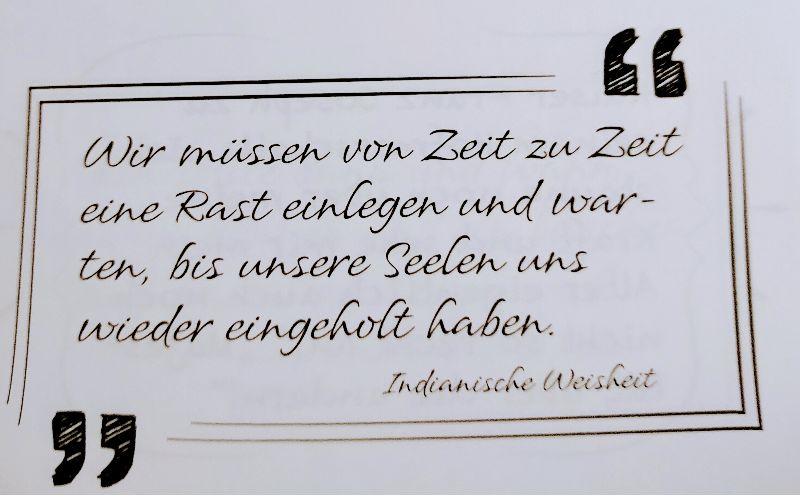 Wir müssen von Zeit zu Zeit
eine Rast einlegen und war-
ten, bis unsere Seelen uns
wieder eingeholt haben.
Indianische Weisheit